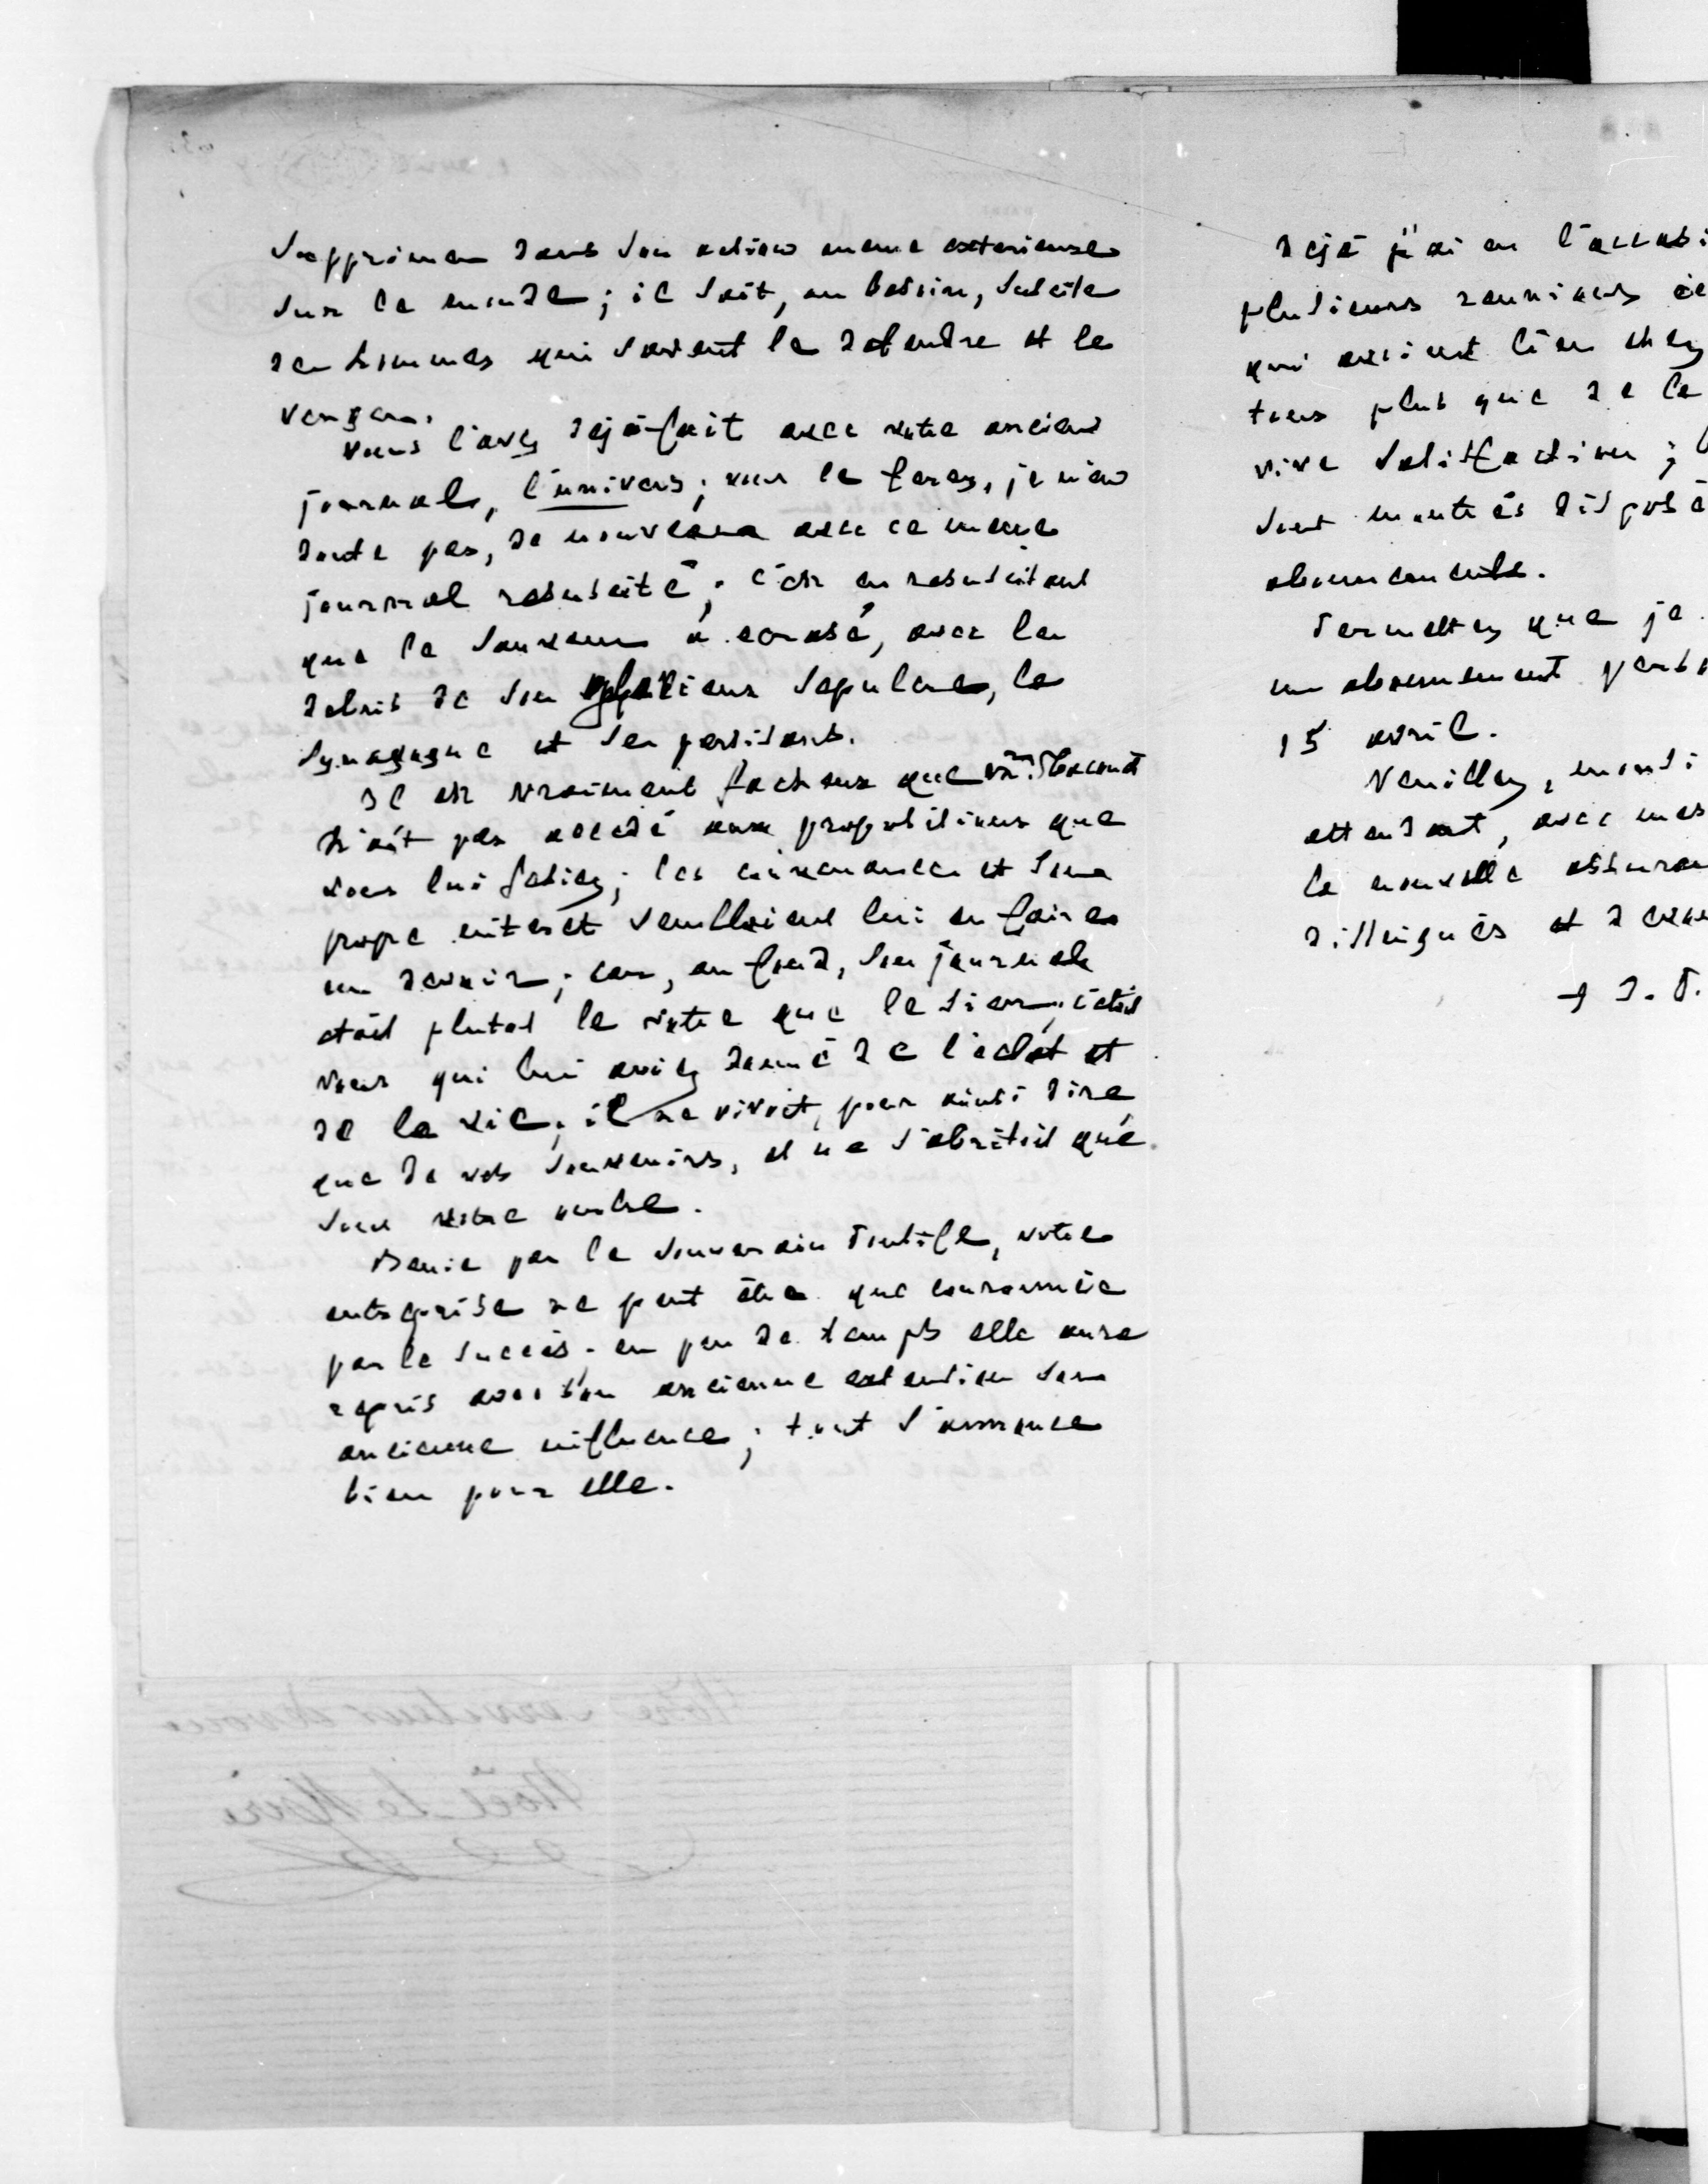 supprimer dans son action meme exterieure
sur le monde ; il sait, au besoin, susciter
des hommes qui savent le defendre et le
venger.
vous l'avez dejà fait avec votre ancien
journal, l'univers ; vous le ferez, je n'en
doute pas, de nouveau avec ce meme
journal resuscité ; c'est en resuscitant
que le sauveur a ecrasé, avec les
debris de son glorieux sepulcre, la
synagogue et ses partisans.
Il est vraiment facheux que mr.
n'ait pas accedé aux propositions que
vous lui fesiez ; les circonances et son
propre interet sembloient lui en faire
un devoir ; car, au fond, son journal
etait plutot le votre que le sien ; c'etait
vous qui lui aviez donné de l'eclat et
de la vie ; il ne vivoit, pour ainsi dire
que de vos souvenirs, et ne s'abritoit que
sous votre ombre.
Benie par le souverain Pontife, votre
entreprise ne peut être que couronnée
par le succès ; en peu de temps elle aura
repris avec son ancienne extension son
ancienne influence ; tout s'annonce
bien pour elle.
Dejà j'ai eu l'
plusieurs reunions
qui avoient lieu chez
tous plus que de la
vive satisfaction ;
sont montrés disposé
abonnements.
Permettez que je
un abonnement
15 avril.
Veuillez,
attendant, avec mes
la nouvelle
distingués et
+ J. P.
Votre serviteur devoué
Noël Le Mire